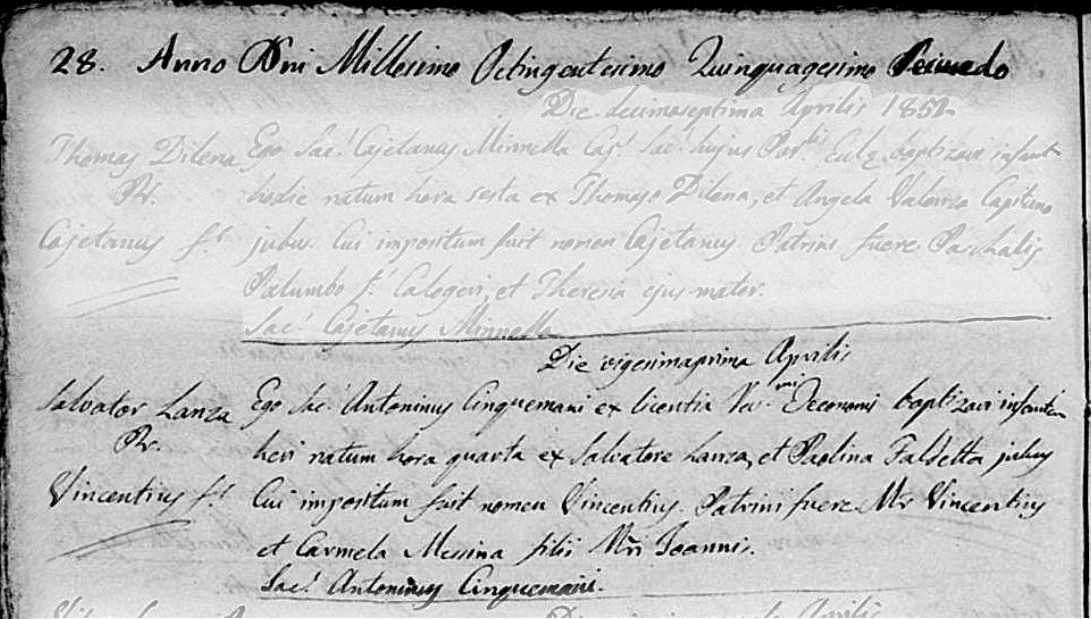 28. Anno Dni Millesimo Octingentesimo Quinquagesimo
Die decimaseptima Aprilis 1852
Thomas Dilena Ego Sac: Cajetanus Minnella Cap: Sac: hujus Par: Eccle baptizavi infant
Pr. hodie natum hora sexta ex Thomaso Dilena, et Angela Valenza Capitano
Cajetanus f: jubus. Cui impositum fuit nomen Cajetanus Patrini fuere Paschalis
Palumbo f: Calogeri, et Theresia ejus mater.
Sac: Cajetanus Minnella
Die vigesimaprima Aprilis
Salvator Lanza Ego Sac: Antoninus Cinquemani ex licentia Rev:mi Oeconomi baptizavi infantem
Pr. heri natum hora quarta ex Salvatore Lanza, et Paolina Faldetta jubus
Vincentius f: Cui impositum fuit nomen Vincentius. Patrini fuere Mr Vincentius
et Carmela Messina filii Mri Joannis.
Sac: Antoninus Cinquemani.
Aprilis